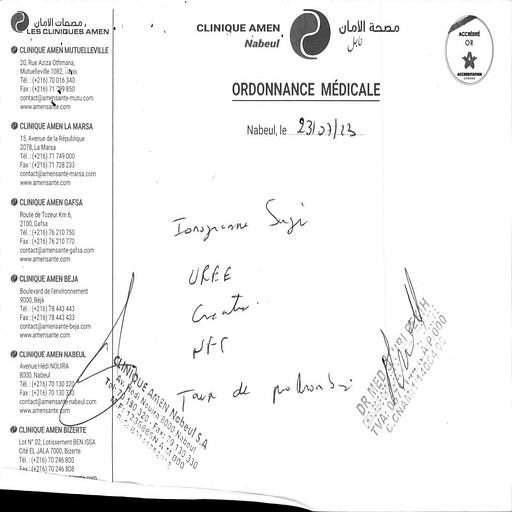 مصحات الأمان
LES CLINIQUES AMEN
CLINIQUE AMEN MUTUELLEVILLE
20, Rue Aziza Othmana,
Mutuelleville 1082, Tunis
Tél. : (+216) 70 016 340
Fax : (+216) 71 799 850
contact@amensante-mutu.com
www.amensante.com
CLINIQUE AMEN LA MARSA
15, Avenue de la République
2078, La Marsa
Tél. : (+216) 71 749 000
Fax : (+216) 71 728 233
contact@amensante-marsa.com
www.amensante.com
CLINIQUE AMEN GAFSA
Route de Tozeur Km 6,
2100, Gafsa
Tél. : (+216) 76 210 750
Fax : (+216) 76 210 770
contact@amensante-gafsa.com
www.amensante.com
CLINIQUE AMEN BEJA
Boulevard de l'environnement
9000, Béjà
Tél. : (+216) 78 443 443
Fax : (+216) 78 443 433
contact@amensante-beja.com
www.amensante.com
CLINIQUE AMEN NABEUL
Avenue Hédi NOUIRA
8000, Nabeul
Tél. : (+216) 70 130 320
Fax : (+216) 70 130 330
contact@amensante-nabeul.com
www.amensante.com
CLINIQUE AMEN BIZERTE
Lot N° 02, Lotissement BEN ISSA
Cité EL JALA 7000, Bizerte
Tél. : (+216) 70 246 800
Fax : (+216) 70 246 808
CLINIQUE AMEN
Nabeul
مصحة الأمان
نابل
ACCRÉDITÉ
OR
ACCREDITATION
CANADA
ORDONNANCE MÉDICALE
Nabeul, le 23/07/23
Ionogramme Sangi
UREE
Creatin
NFS
Taux de prothrombi
CLINIQUE AMEN Nabeul S.A
Av. Hédi Nouira 8000 Nabeul
Tél: 70 130 320 - Fax: 70 130 330
DR MED